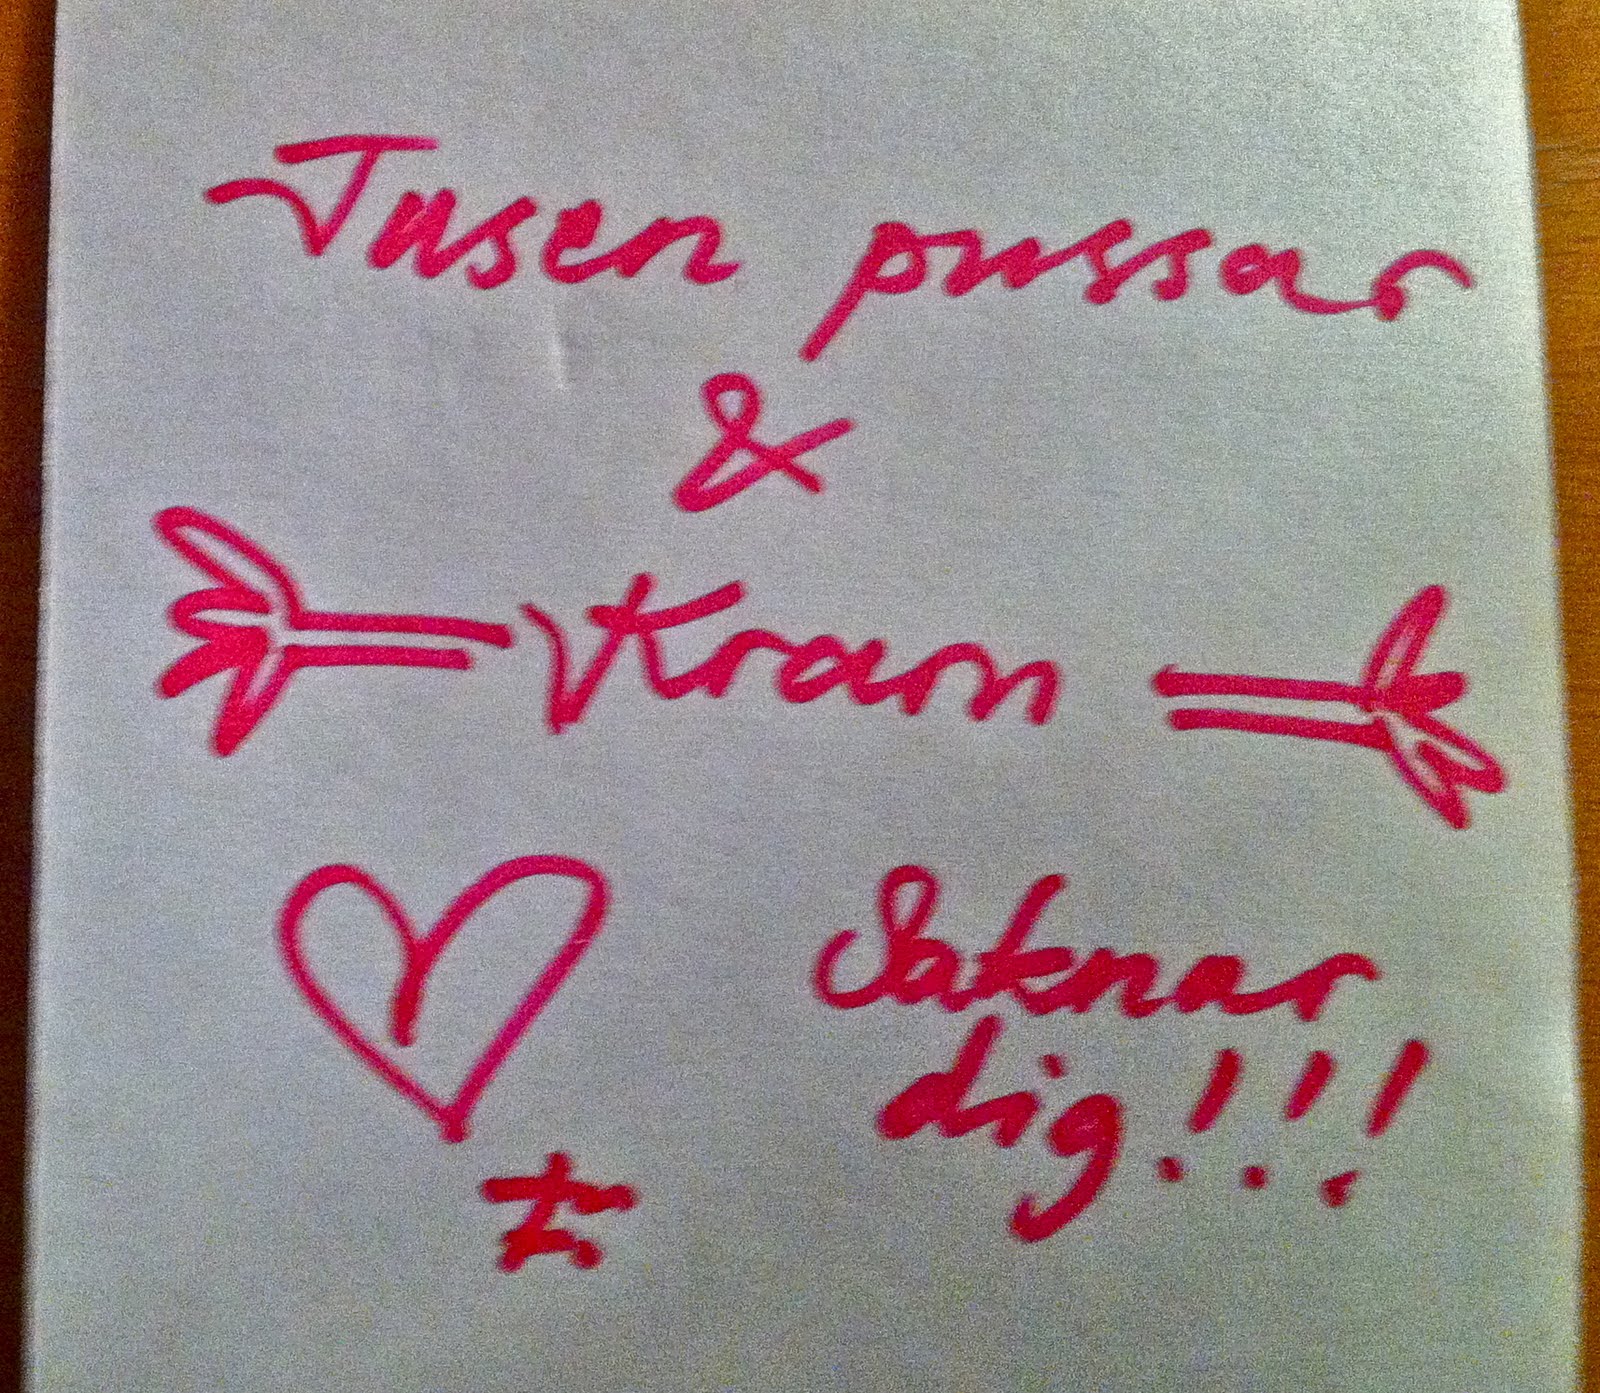 Tusen pussar
&
Kram
Saknar
dig!!!